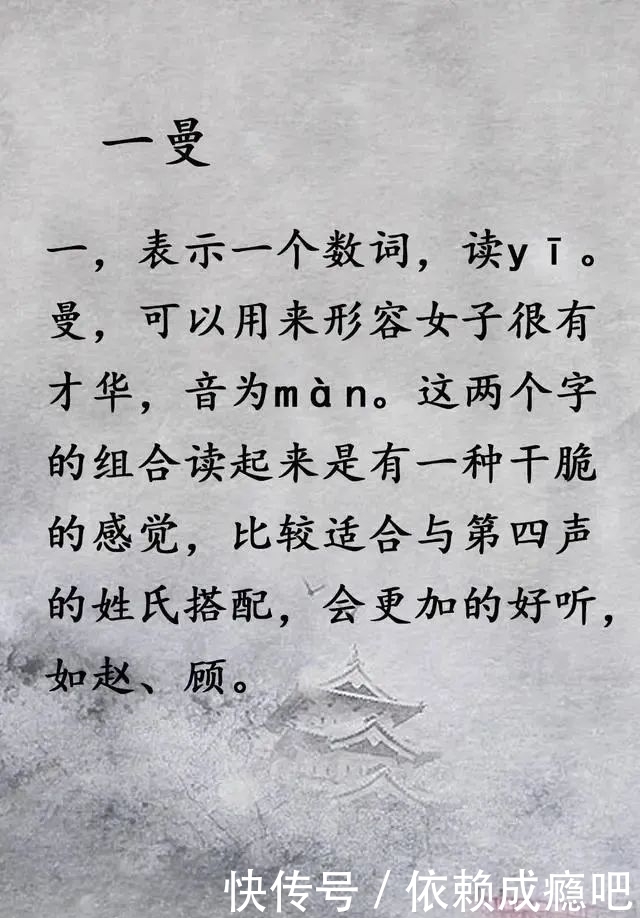 一曼
一，表示一个数词，读yī。
曼，可以用来形容女子很有
才华，音为màn。这两个字
的组合读起来是有一种干脆
的感觉，比较适合与第四声
的姓氏搭配，会更加的好听，
如赵、顾。
快传号 / 依赖成瘾吧